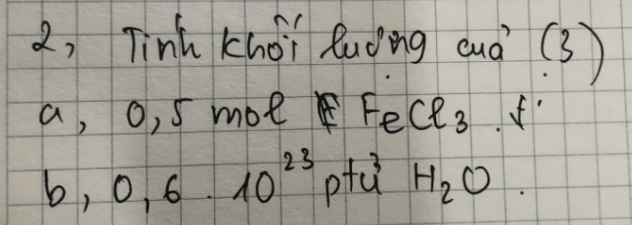 2, Tính khối lượng của (3)
a, 0,5 mol FeCl₃.
b, 0,6 . 10²³ ptử H₂O.